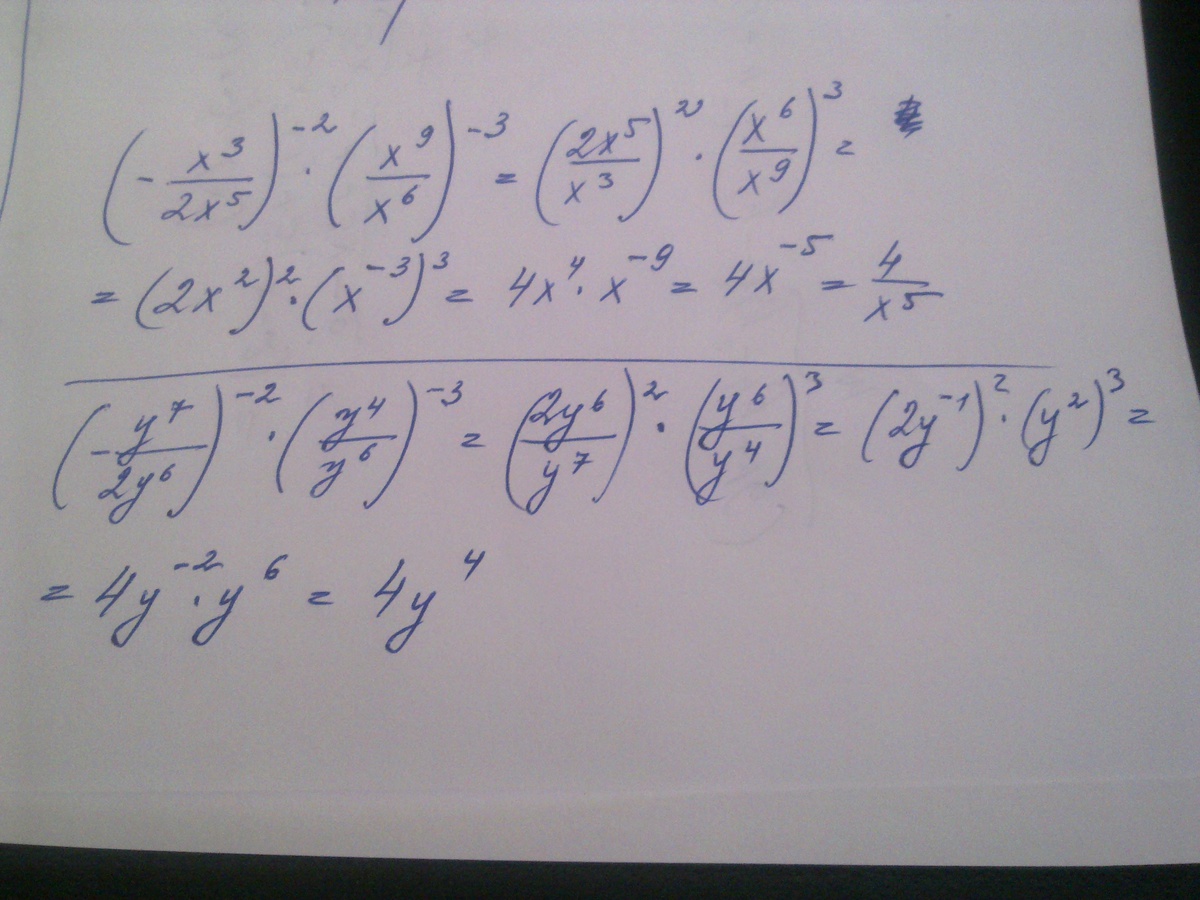 (-x³/2x⁵)⁻² · (x⁹/x⁶)⁻³ = (2x⁵/x³)² · (x⁶/x⁹)³ =
= (2x²)² · (x⁻³)³ = 4x⁴ · x⁻⁹ = 4x⁻⁵ = 4/x⁵
(-y⁷/2y⁶)⁻² · (y⁴/y⁶)⁻³ = (2y⁶/y⁷)² · (y⁶/y⁴)³ = (2y⁻¹)² · (y²)³ =
= 4y⁻² · y⁶ = 4y⁴